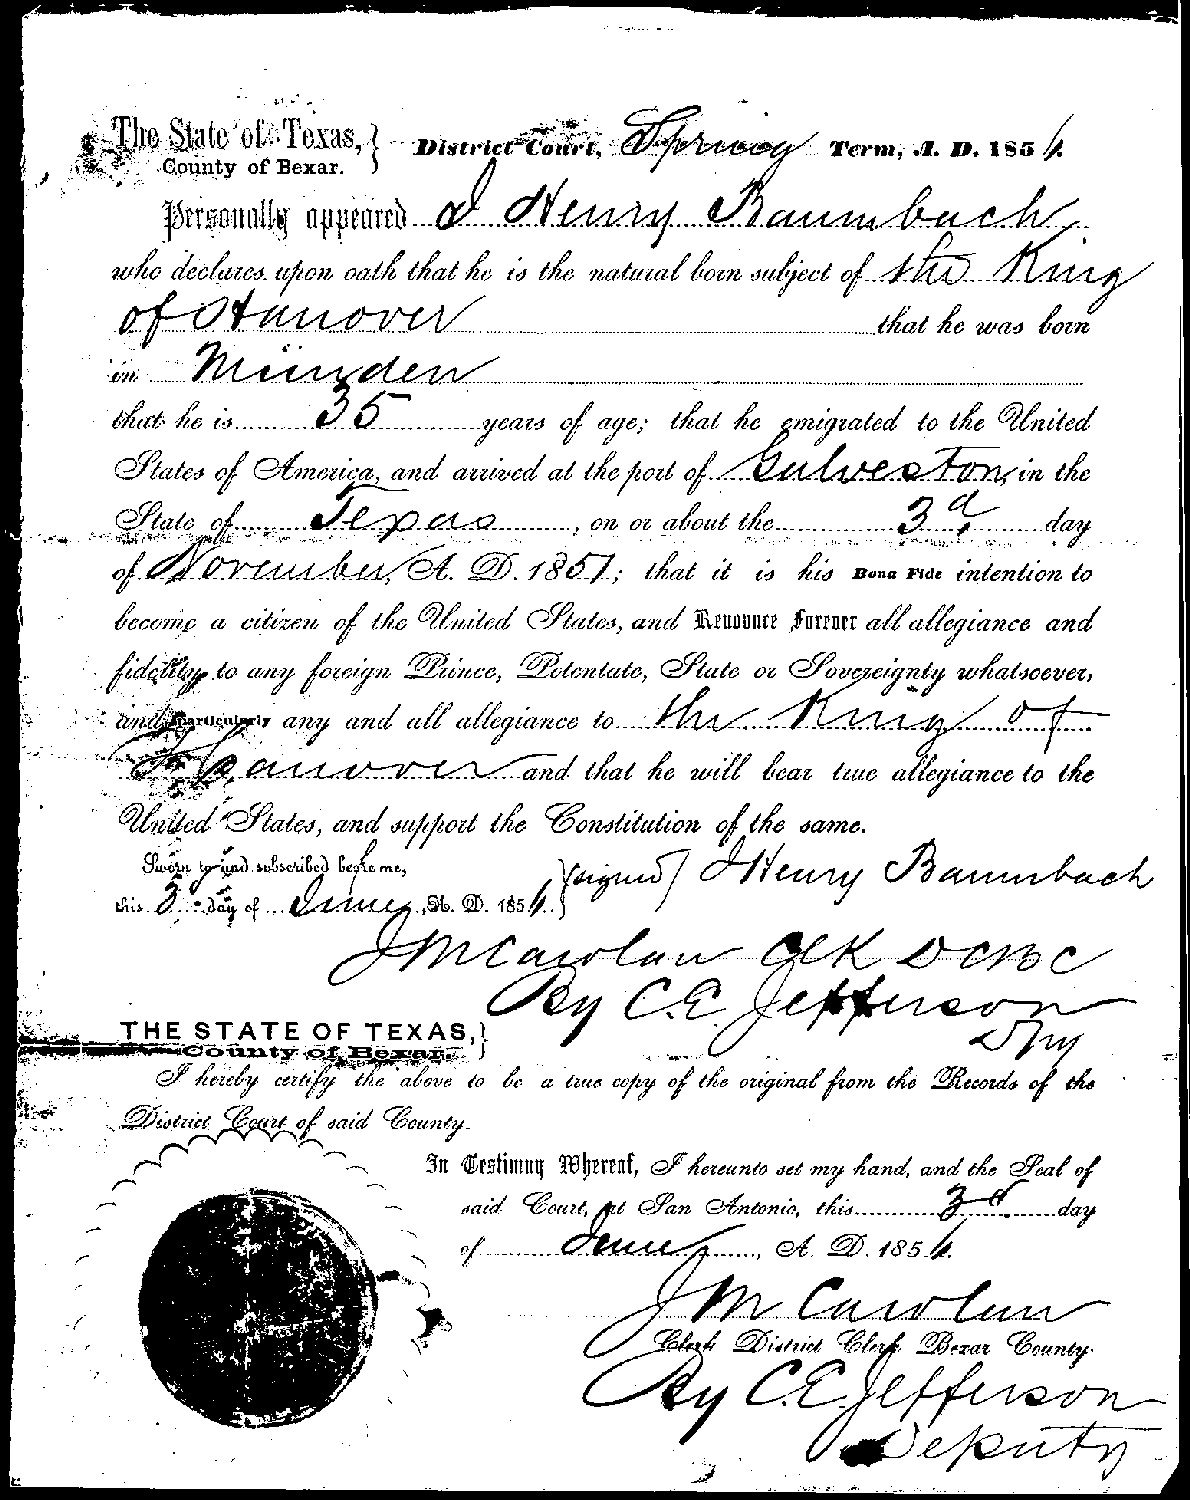 The State of Texas, } District Court, Spring Term, A. D. 1856.
County of Bexar.
Personally appeared J Henry Baumbach
who declares upon oath that he is the natural born subject of the King
of Hanover that he was born
in Münden
that he is 35 years of age; that he emigrated to the United
States of America, and arrived at the port of Galveston, in the
State of Texas, on or about the 3d day
of November, A. D. 1851; that it is his Bona Fide intention to
become a citizen of the United States, and Renounce Forever all allegiance and
fidelity to any foreign Prince, Potentate, State or Sovereignty whatsoever,
and particularly any and all allegiance to the King of
Hanover and that he will bear true allegiance to the
United States, and support the Constitution of the same.
Sworn to and subscribed before me, } (signed) J Henry Baumbach
this 3d day of June, A. D. 1856.
J M Carolan Clk DCBC
By C. E. Jefferson
Dpy
THE STATE OF TEXAS, }
County of Bexar.
I hereby certify the above to be a true copy of the original from the Records of the
District Court of said County.
In Testimny Whereof, I hereunto set my hand, and the Seal of
said Court, at San Antonio, this 3d day
of June, A. D. 1856.
J M Carolan
Clerk District Clerk Bexar County.
By C. E. Jefferson
Deputy